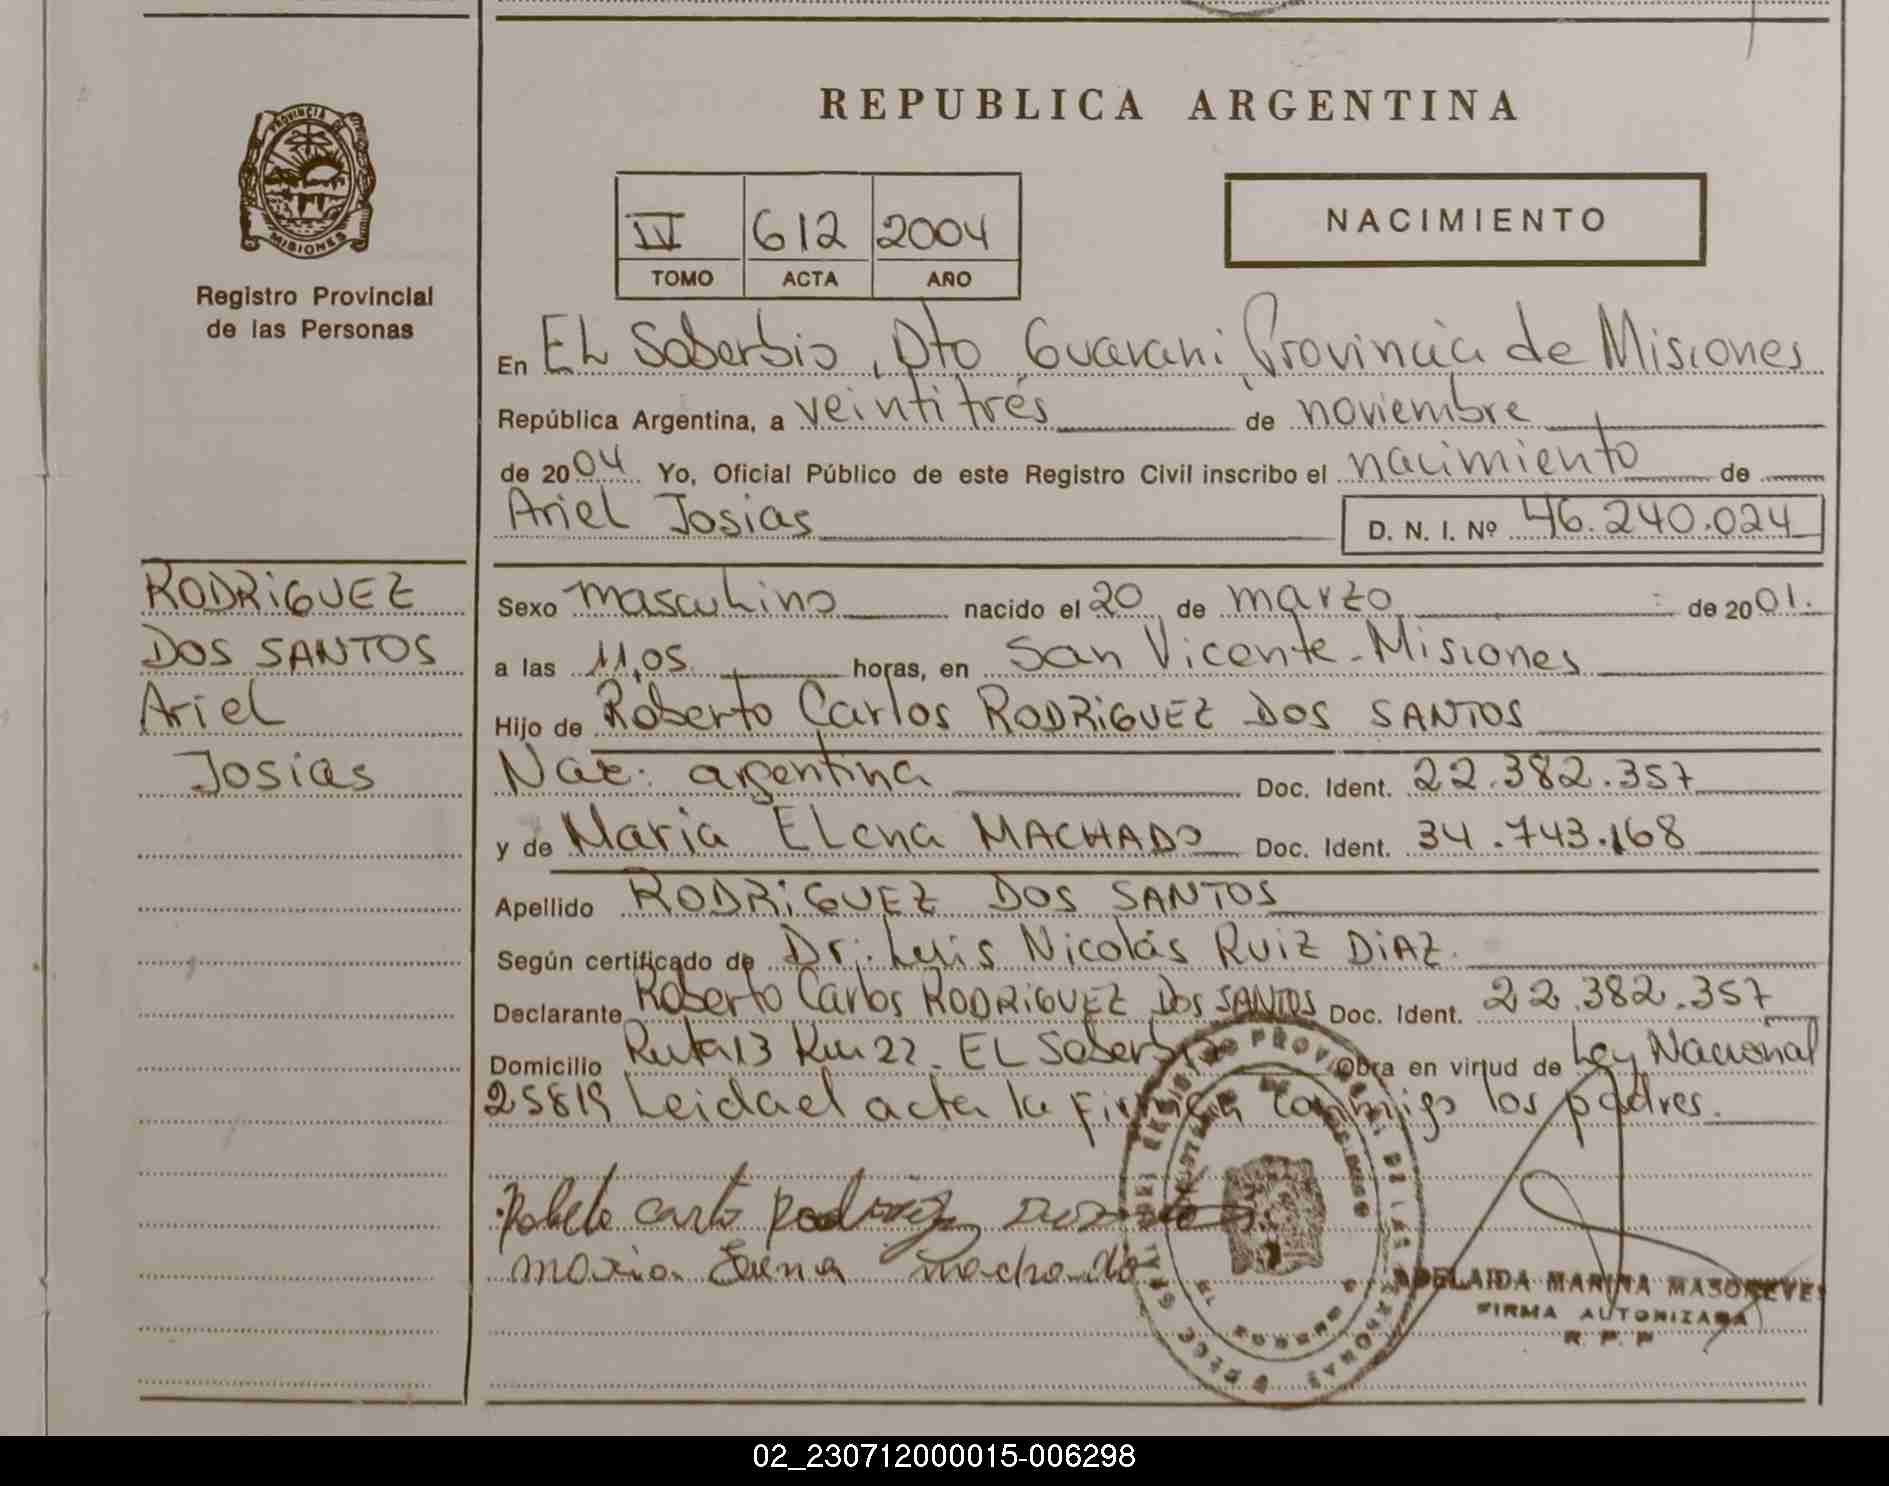 REPUBLICA ARGENTINA
PROVINCIA DE
MISIONES
Registro Provincial
de las Personas
IV 612 2004
TOMO ACTA AÑO
NACIMIENTO
En EL Soberbio, Dto Guarani, Provincia de Misiones
República Argentina, a veintitrés de noviembre
de 2004 Yo, Oficial Público de este Registro Civil inscribo el nacimiento de
Ariel Josias D. N. I. Nº 46.240.024
RODRIGUEZ
DOS SANTOS
Ariel
Josias
Sexo masculino nacido el 20 de marzo de 2001.
a las 11,05 horas, en San Vicente - Misiones
Hijo de Roberto Carlos RODRIGUEZ DOS SANTOS
Nac: argentina Doc. Ident. 22.382.357
y de Maria ELena MACHADO Doc. Ident. 34.743.168
Apellido RODRIGUEZ DOS SANTOS
Según certificado de Dr: Luis Nicolás RUIZ DIAZ.
Declarante Roberto Carlos RODRIGUEZ DOS SANTOS Doc. Ident. 22.382.357
Domicilio Ruta 13 Km 22 - EL Soberbio Obra en virtud de Ley Nacional
25819 Leida el acta la firman conmigo los padres.
Roberto Carlos Rodriguez
maria Elena machado
ADELAIDA MARINA MASONEVES
FIRMA AUTORIZADA
R. P. P
02_230712000015-006298